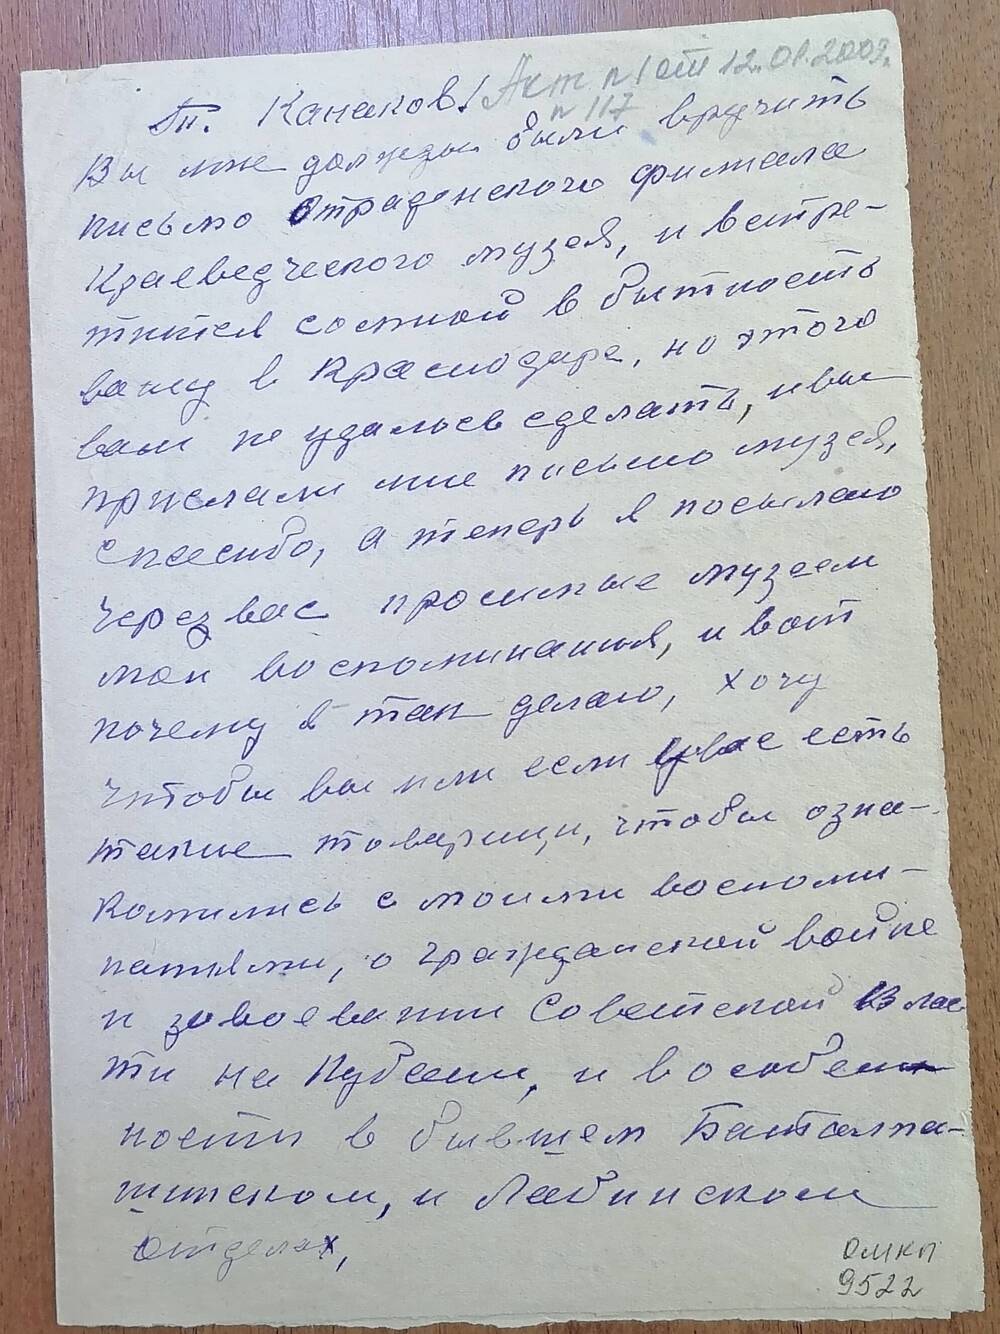 Акт п 1 от 12.01.2009.
п 117
Т. Канаков!
Вы мне должны были вручить
письмо Отраденского филиала
Краеведческого музея, и встре-
титься сомной в бытность
вашу в Краснодаре, но этого
вам не удалось сделать, и вы
прислали мне письмо музея,
спасибо, а теперь я посылаю
через вас просимые музеем
мои воспоминания, и вот
почему я так делаю, хочу
чтобы вы или если у вас есть
такие товарищи, чтобы озна-
комились с моими воспоми-
натями, о гражданской войне
и завоевании Советской Влас
ти на Кубани, и в особен
ности в бывшем Баталпа-
шинском, и Лабинском
отделах,
ОМКП
9522